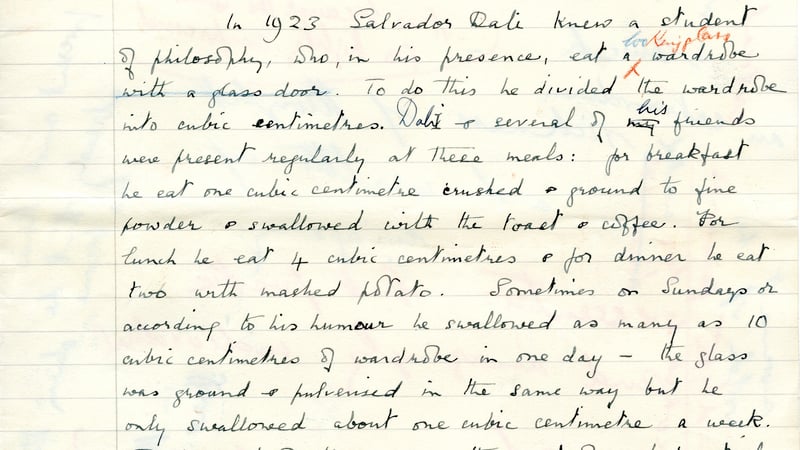 In 1923 Salvador Dali knew a student
looking glass
of philosophy, who, in his presence, eat a wardrobe
with a glass door. To do this he divided the wardrobe
his
into cubic centimetres. Dali & several of my friends
were present regularly at these meals: for breakfast
he eat one cubic centimetre crushed & ground to fine
powder & swallowed with the toast & coffee. For
lunch he eat 4 cubic centimetres & for dinner he eat
two with mashed potato. Sometimes on Sundays or
according to his humour he swallowed as many as 10
cubic centimetres of wardrobe in one day – the glass
was ground & pulverised in the same way but he
only swallowed about one cubic centimetre a week.